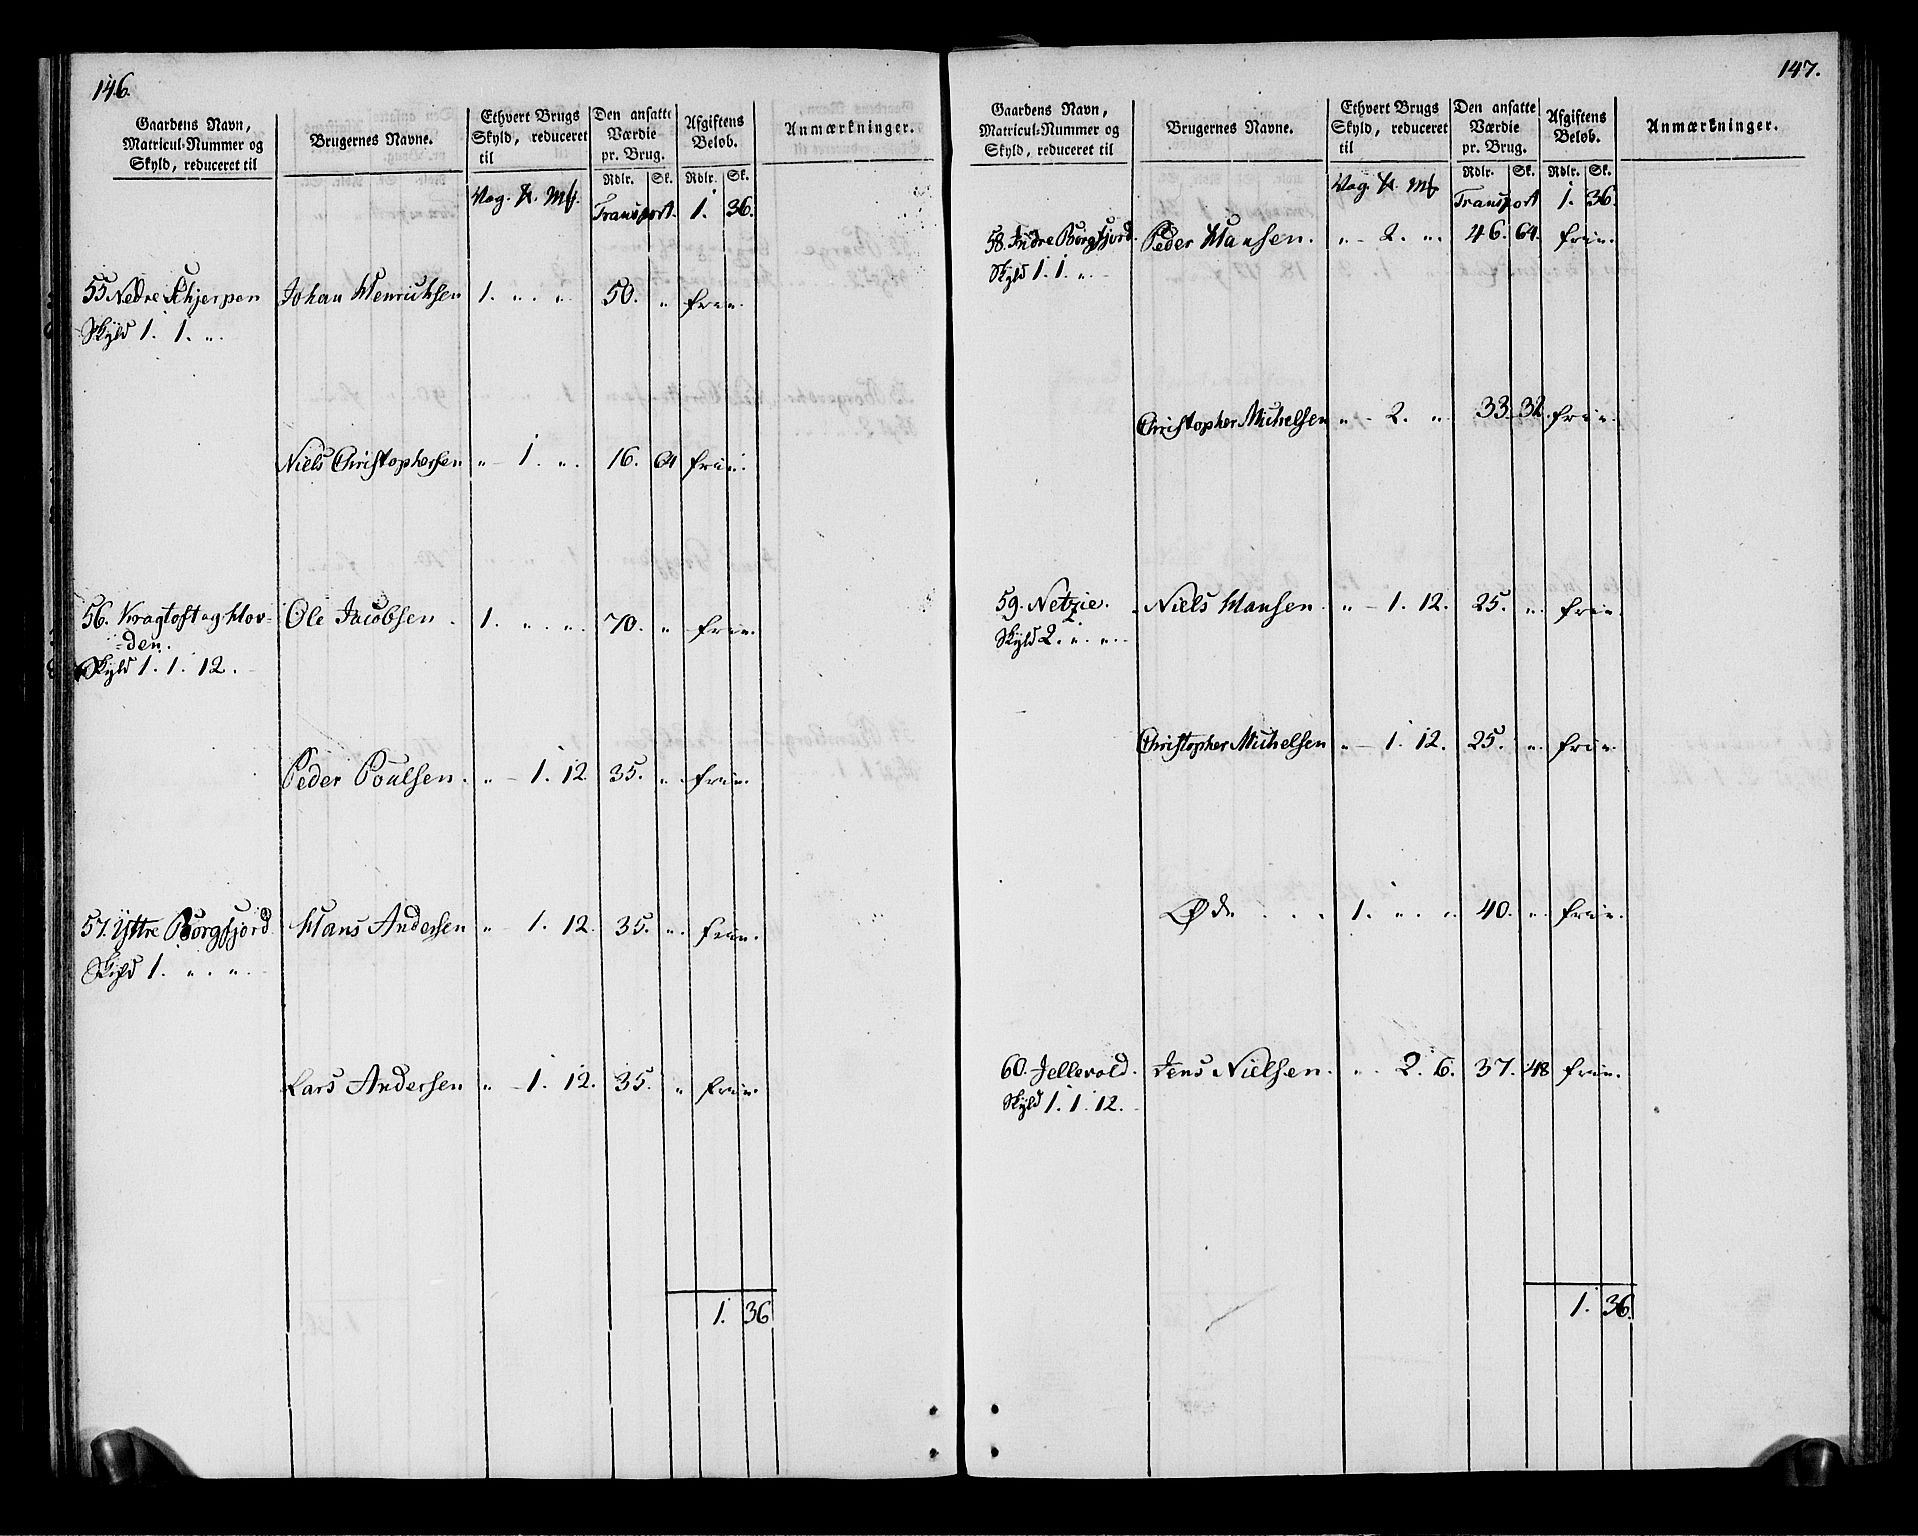 146.
Gaardens Navn,
Matricul-Nummer og
Skyld, reduceret til
Brugernes Navne.
Ethvert Brugs
Skyld, reduceret
til
Den ansatte
Værdie
pr. Brug.
Afgiftens
Beløb.
Anmærkninger.
Rdlr. Sk. Rdlr. Sk.
Vog. ℔. Mk. Transport. 1. 36.
55 Nedre Schjerpen Johan Henrichsen 1. " " 50. " frie.
Skyld 1. 1. "
Niels Christophersen " 1. " 16. 64 frie.
56. Kragtoft og Hov- Ole Jacobsen. 1. " " 70. " frie.
=den.
Skyld 1. 1. 12.
Peder Poulsen. " 1. 12 35. " frie.
57. Yttre Borgfjord Hans Andersen " 1. 12. 35. " frie.
Skyld 1. " "
Lars Andersen " 1. 12. 35. " frie.
1. 36
147.
Gaardens Navn,
Matricul-Nummer og
Skyld, reduceret til
Brugernes Navne.
Ethvert Brugs
Skyld, reduceret
til
Den ansatte
Værdie
pr. Brug.
Afgiftens
Beløb.
Anmærkninger.
Rdlr. Sk. Rdlr. Sk.
Vog. ℔. Mk. Transport 1. 36.
58. Indre Borgfjord. Peder Hansen. " 2. " 46. 64. frie.
Skyld 1. 1. "
Christopher Michelsen " 2. " 33. 32. frie.
59. Netzie. Niels Hansen. " 1. 12. 25. " frie.
Skyld 2. " "
Christopher Michelsen " 1. 12. 25. " frie.
Øde . . . 1. " " 40. " frie.
60. Jellevold. Jens Nielsen. " 2. 6. 37. 48 frie.
Skyld 1. 1. 12.
1. 36.